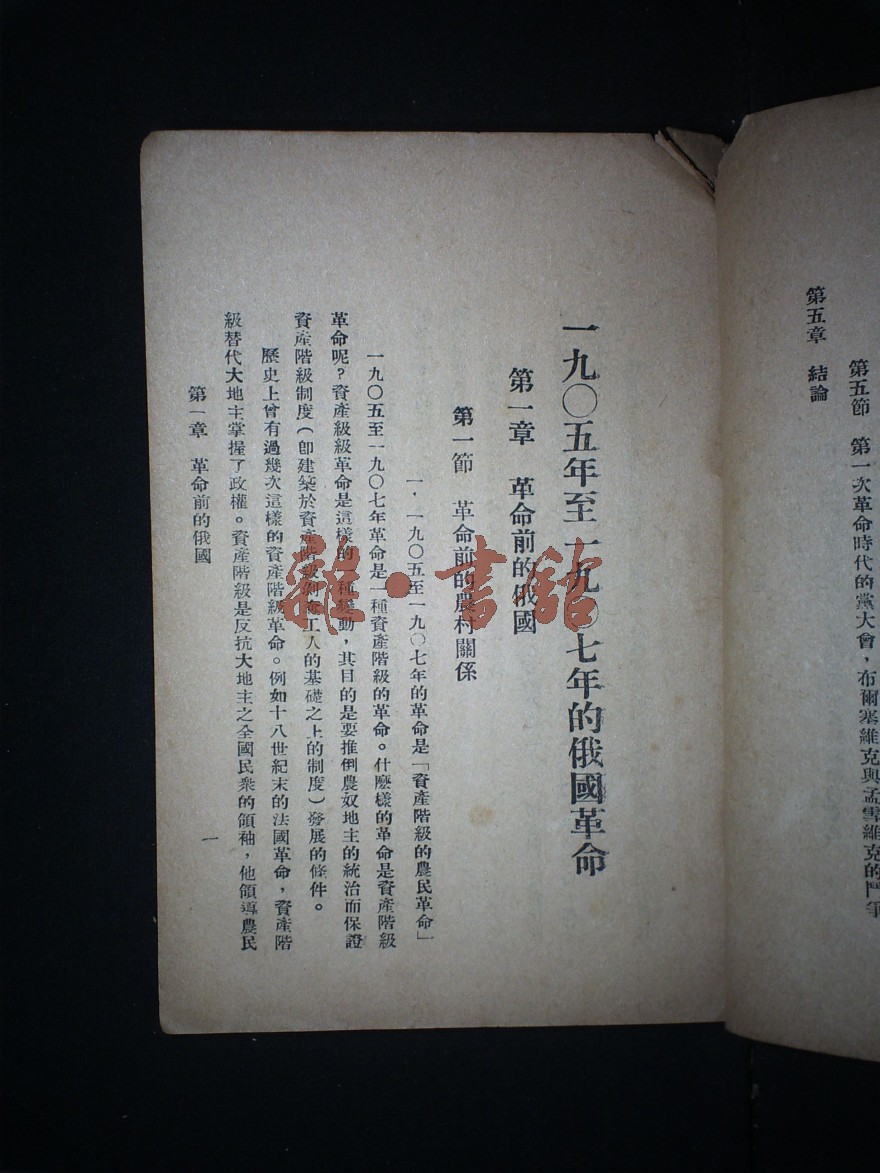 第五節 第一次革命時代的黨大會，布爾塞維克與孟雪維克的鬥爭
第五章 結論
一九〇五年至一九〇七年的俄國革命
第一章 革命前的俄國
第一節 革命前的農村關係
一．一九〇五至一九〇七年的革命是「資產階級的農民革命」
一九〇五至一九〇七年革命是一種資產階級的革命。什麽樣的革命是資產階級
革命呢？資產級級革命是這樣的一種變動，其目的是要推倒農奴地主的統治而保證
資產階級制度（卽建築於資產階級剝削工人的基礎之上的制度）發展的條件。
歷史上曾有過幾次這樣的資產階級革命。例如十八世紀末的法國革命，資產階
級替代大地主掌握了政權。資產階級是反抗大地主之全國民衆的領袖，他領導農民
第一章 革命前的俄國
一
雜·書館